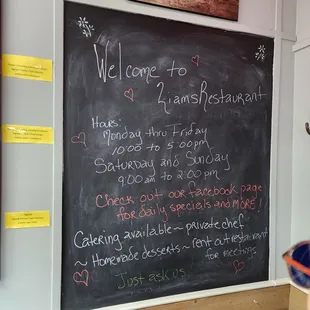 Welcome to
Liams Restaurant
Hours:
Monday thru Friday
10:00 to 5:00 pm
Saturday and Sunday
9:00 am to 2:00 pm
Check out our facebook page
for daily specials and more!
Catering available ~ private chef
~ Homemade desserts ~ rent out restaurant
for meetings
Just ask us